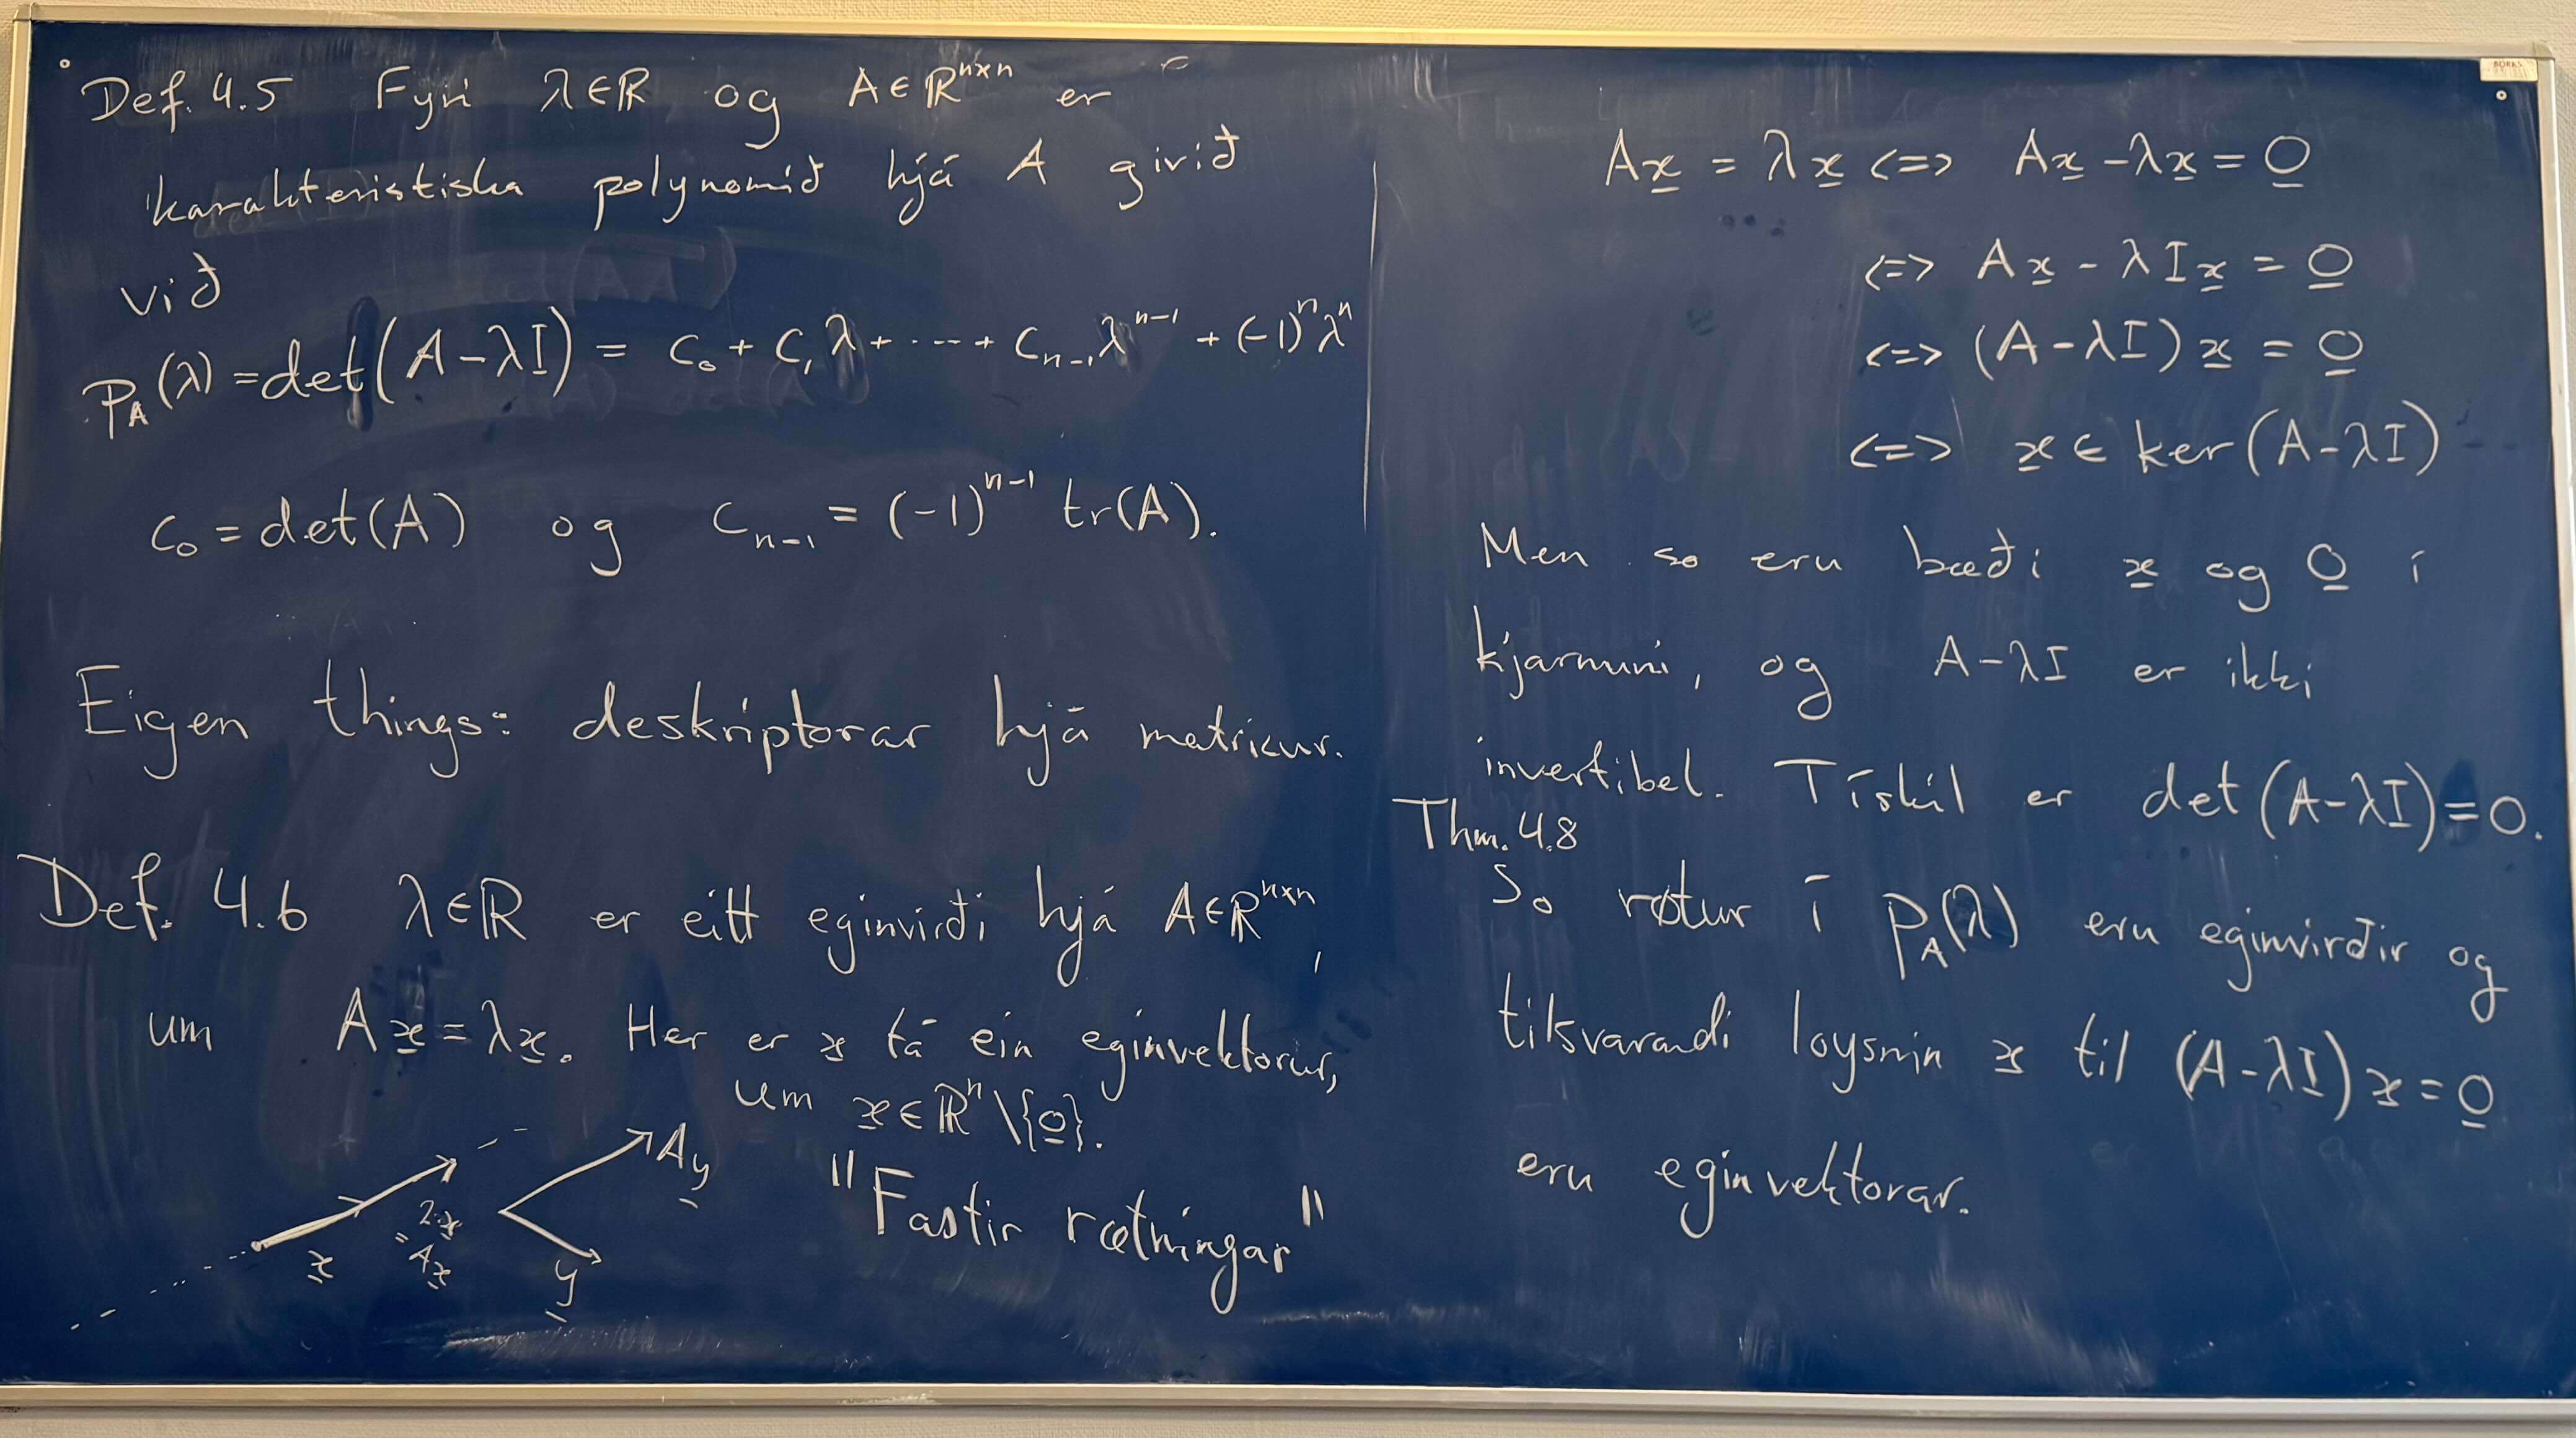 Def. 4.5 Fyri λ∈ℝ og A∈ℝⁿˣⁿ er
karakteristiska polynomið hjá A givið
við
p_A(λ) = det(A-λI) = c₀ + c₁λ + ···· + c_{n-1}λ^{n-1} + (-1)ⁿλⁿ
c₀ = det(A) og c_{n-1} = (-1)^{n-1} tr(A).
Eigen things: deskriptorar hjá matricur.
Def. 4.6 λ∈ℝ er eitt eginvirði hjá A∈ℝⁿˣⁿ,
um Ax̲ = λx̲. Her er x̲ tá ein eginvektorur,
um x̲∈ℝⁿ\{0̲}.
x̲
2·x̲
= Ax̲
Ay̲
y̲
"Fastir rætningar"
Ax̲ = λx̲ <=> Ax̲ - λx̲ = 0̲
<=> Ax̲ - λIx̲ = 0̲
<=> (A-λI)x̲ = 0̲
<=> x̲ ∈ ker(A-λI)
Men so eru bæði x̲ og 0̲ í
kjarnuni, og A-λI er ikki
invertibel. Tískil er det(A-λI)=0.
Thm. 4.8
So røtur í p_A(λ) eru eginvirðir og
tilsvarandi loysnin x̲ til (A-λI)x̲=0̲
eru eginvektorar.